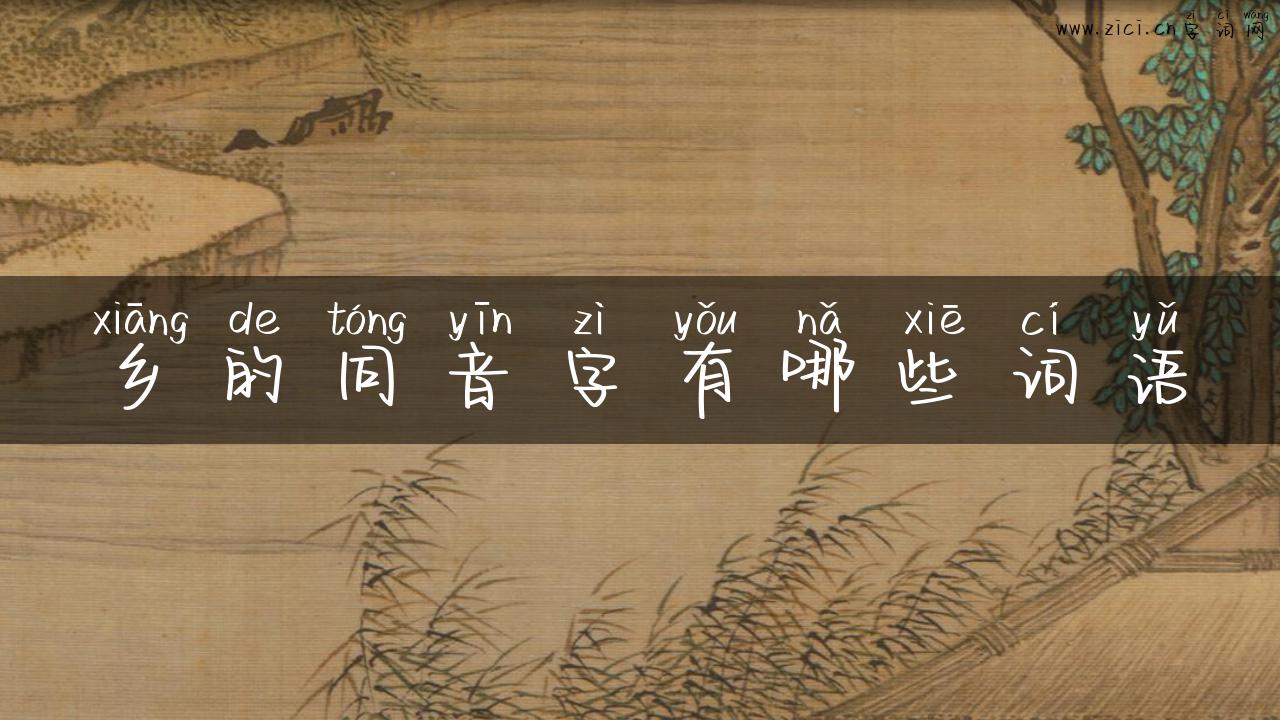 zì cí wǎng
www.zici.cn字词网
xiāng de tóng yīn zì yǒu nǎ xiē cí yǔ
乡的同音字有哪些词语